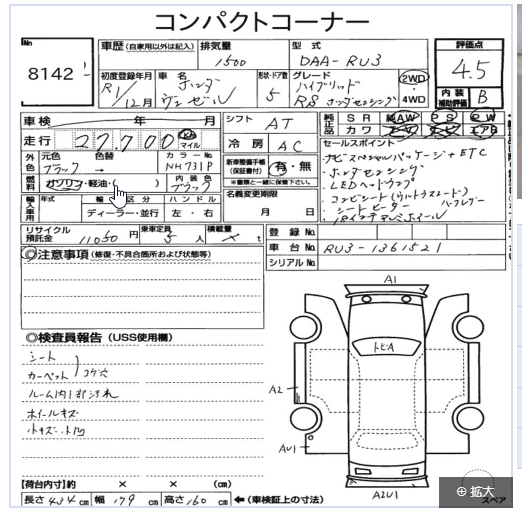 コンパクトコーナー
No 8142
車歴(自家用以外は記入) 排気量 1500 型式 DAA-RU3
評価点 4.5
初度登録年月 R1/12月 車名 ホンダ ヴェゼル 形状・ドア数 5 グレード ハイブリッド RS ホンダセンシング 2WD・4WD
内装補助評価 B
車検 年 月 シフト AT
走行 27,700 km マイル 冷房 AC
純正品 SR AW PS PW カワ エアB
外色 元色 ブラック 色替 → カラーNo. NH731P
新車整備手帳(保証書付) 有・無
※書類と一緒に保管下さい.
燃料 ガソリン・軽油・( ) 内装色 ブラック
セールスポイント
ナビスペシャルパッケージ+ETC
・ホンダセンシング
・LEDヘッドランプ
・コンビシート(ウルトラスエード)
・シートヒーター
輸入車用 年式 輸入区分 ディーラー・並行 ハンドル 左・右
名義変更期限 月 日
リサイクル預託金 11050円 乗車定員 5人 積載量 ✕ t
登録No.
車台No. RU3-1361521
シリアルNo.
◎注意事項(修復・不具合箇所および状態等)
◎検査員報告(USS使用欄)
シート
カーペット コゲ穴
ルーム内1部汚れ
ホイールキズ
小キズ・小凹
A1
トビA
A2
AU1
A2U1
【荷台内寸】約 × × (cm)
長さ 434 cm 幅 179 cm 高さ 160 cm ←(車検証上の寸法)
スペア
拡大